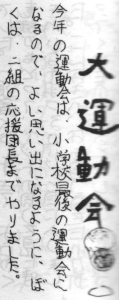 大運動会
今年の運動会は、小学校最後の運動会に
なるので、よい思い出になるように、ぼ
くは、二組の応援団長までやりました。